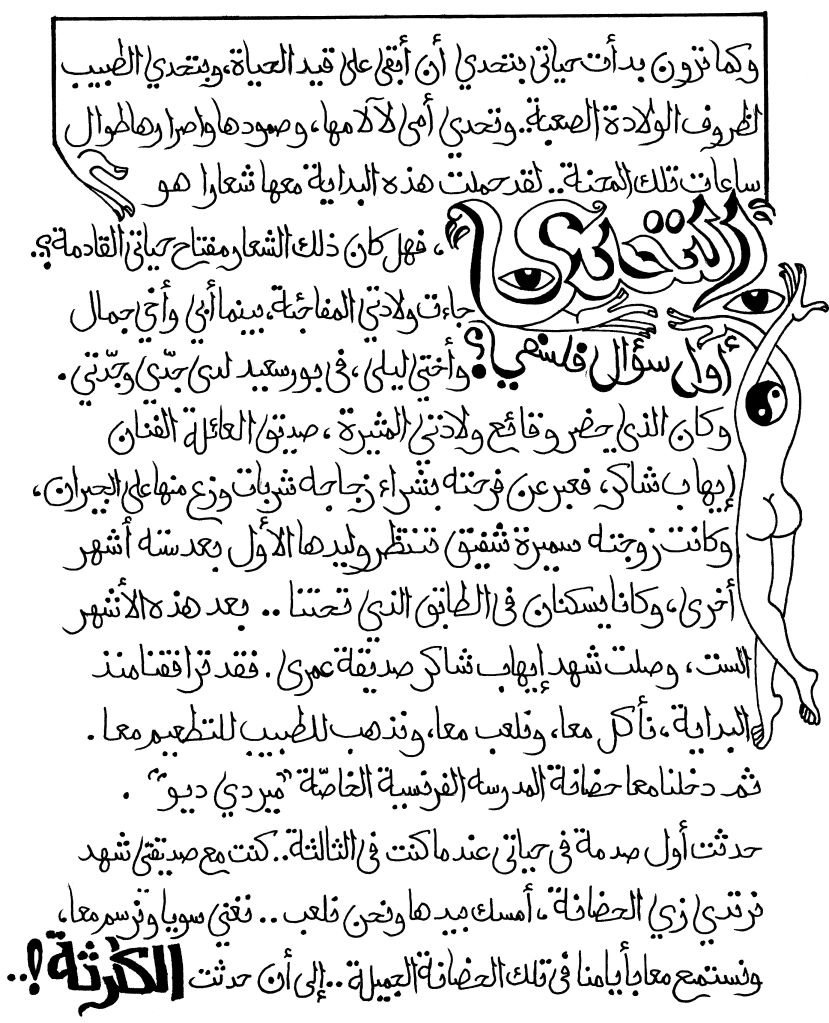 وكما ترون بدأت حياتى بتحدي أن أبقى على قيد الحياة، وبتحدي الطبيب
لظروف الولادة الصعبة.. وتحدي أمى لآلامها، وصمودها وإصرارها طوال
ساعات تلك المحنة.. لقد حملت هذه البداية معها شعارا هو
التحدى
، فهل كان ذلك الشعار مفتاح حياتى القادمة؟.
جاءت ولادتي المفاجئة، بينما أبي وأخي جمال
أول سؤال فلسفي؟
وأختي ليلى، فى بورسعيد لدى جدّي وجدّتي.
وكان الذى حضر وقائع ولادتى المثيرة، صديق العائلة الفنان
إيهاب شاكر، فعبر عن فرحته بشراء زجاجه شربات وزع منها على الجيران،
وكانت زوجته سميرة شفيق تنتظر وليدها الأول بعد سته أشهر
أخرى، وكانا يسكنان فى الطابق الذى تحتنا.. بعد هذه الأشهر
الست، وصلت شهد إيهاب شاكر صديقة عمرى. فقد ترافقنا منذ
البداية، نأكل معا، ونلعب معا، ونذهب للطبيب للتطعيم معا.
ثم دخلنا معا حضانة المدرسه الفرنسية الخاصّة "ميردي ديو".
حدثت أول صدمة فى حياتى عندما كنت فى الثالثة.. كنت مع صديقتى شهد
نرتدي زي الحضانة، أمسك بيدها ونحن نلعب.. نغني سويا ونرسم معا،
ونستمع معا بأيامنا فى تلك الحضانة الجميلة.. إلى أن حدثت الكارثة!..